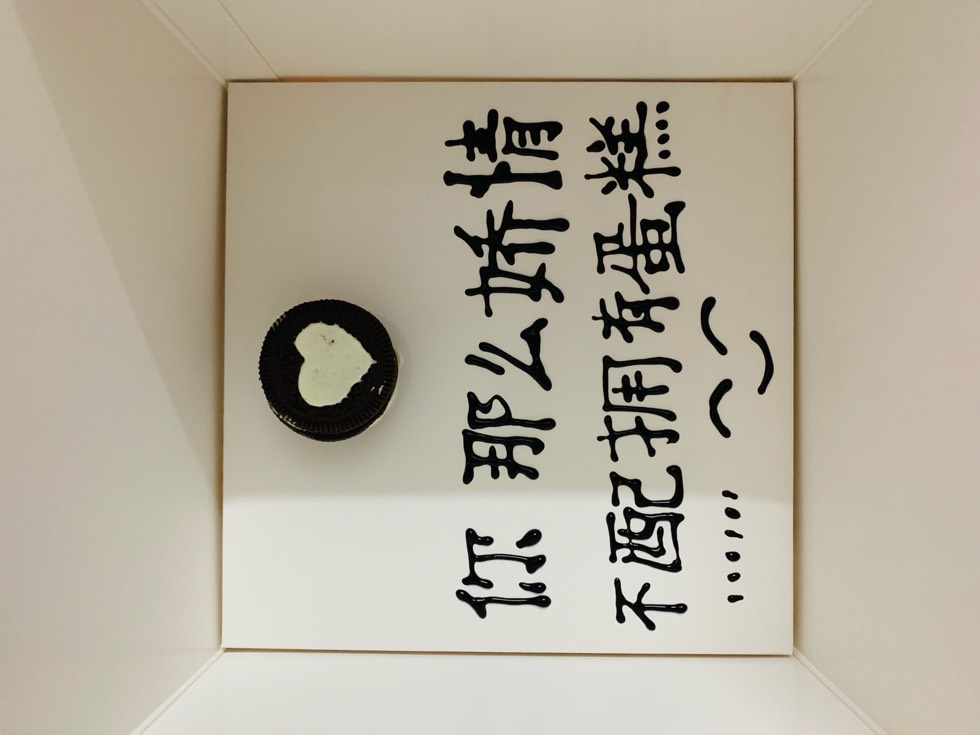 你 那么娇情
不配拥有蛋糕....
......